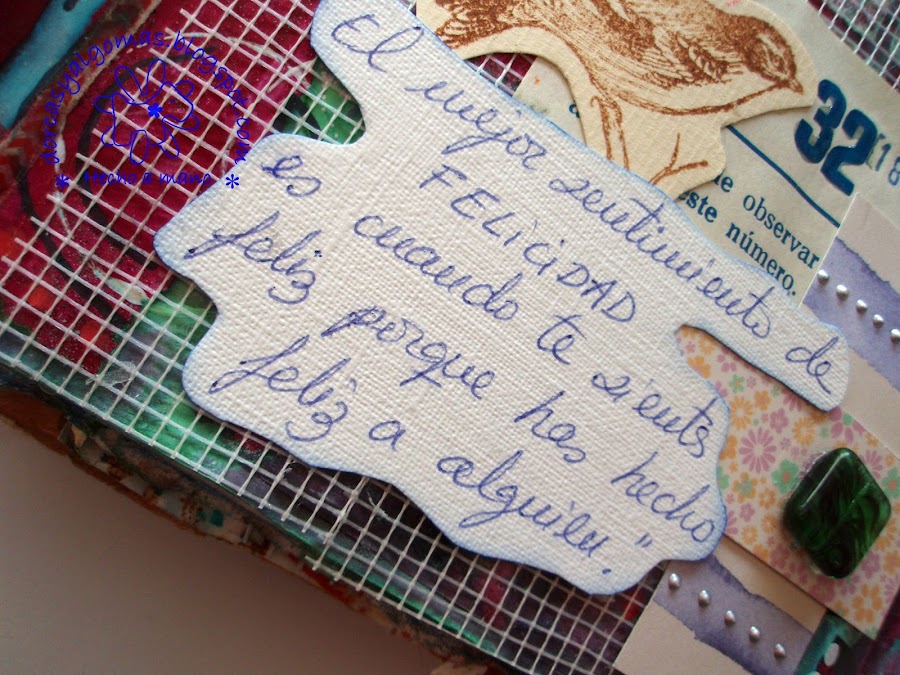 El mejor sentimiento de
FELICIDAD
es cuando te sients
feliz porque has hecho
feliz a alguien."
32
18
de observar
este número.
dorcasyalgomas.blogspot.com
* Hecho a mano *